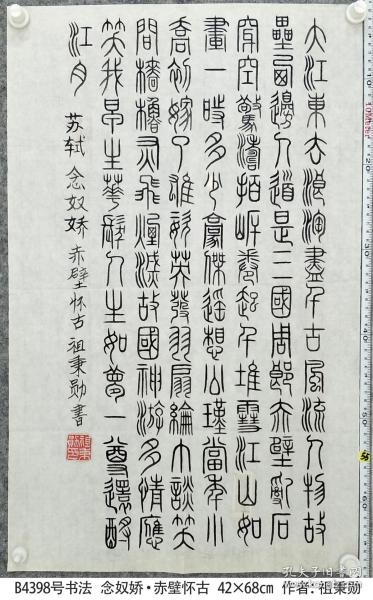 大江東去浪淘盡千古風流人物故
壘西邊人道是三國周郎赤壁亂石
穿空驚濤拍岸卷起千堆雪江山如
畫一時多少豪傑遥想公瑾當年小
喬初嫁了雄姿英發羽扇綸巾談笑
間檣櫓灰飛煙滅故國神游多情應
笑我早生華髮人生如夢一尊還酹
江月 苏轼 念奴娇 赤壁怀古 祖秉勋書
B4398号书法 念奴娇·赤壁怀古 42×68cm 作者:祖秉勋